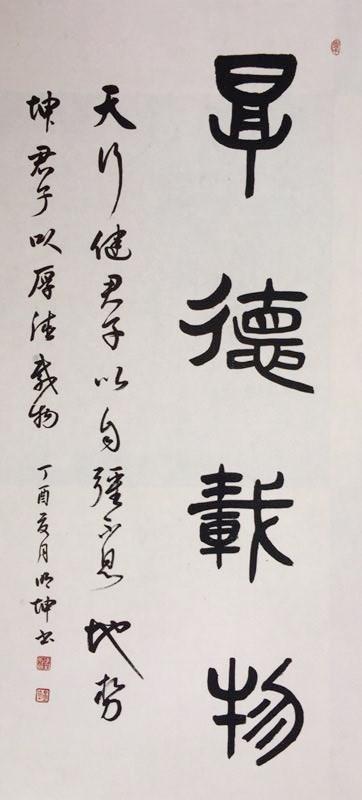 厚德載物
天行健君子以自彊不息地势
坤君子以厚德載物 丁酉夏月明坤书